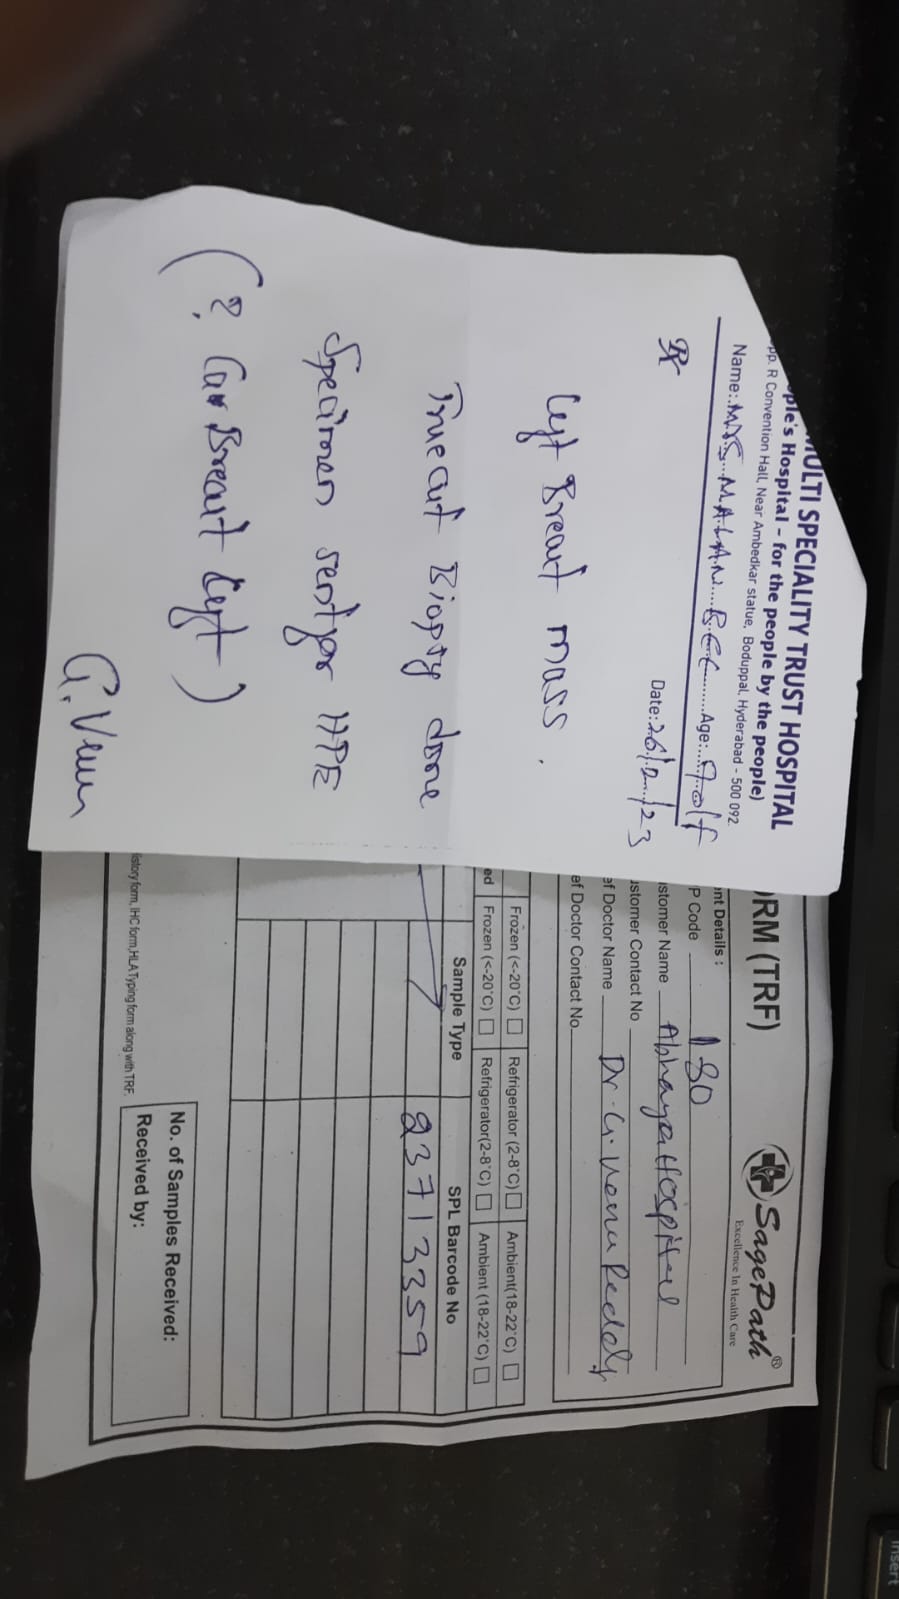 MULTI SPECIALITY TRUST HOSPITAL
ople's Hospital - for the people by the people)
pp. R Convention Hall, Near Ambedkar statue, Boduppal, Hyderabad - 500 092
Name: MRS MALAN BEE Age:
Date: 26/ /23
Left Breast mass.
Truecut Biopsy done
Specimen sent for HPE
(? Ca Breast Left)
G. Venu
ORM (TRF)
SagePath®
Excellence In Health Care
nt Details :
P Code 180
stomer Name Abhaya Hospital
ustomer Contact No
ef Doctor Name Dr. G. Venu Reddy
ef Doctor Contact No
Frozen (<-20°C) Refrigerator (2-8°C) Ambient(18-22°C)
ed Frozen (<-20°C) Refrigerator(2-8°C) Ambient (18-22°C)
Sample Type SPL Barcode No
23713359
No. of Samples Received:
Received by:
istory form, IHC form,HLA Typing form along with TRF.
Insert